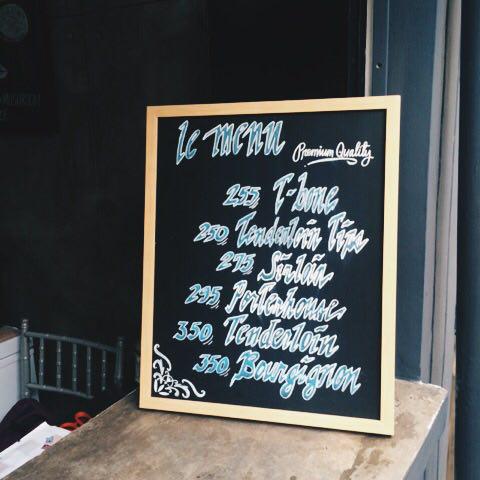 Le menu
Premium Quality
255, T-bone
250, Tenderloin Tips
275, Sirloin
295, Porterhouse
350, Tenderloin
350, Bourgignon